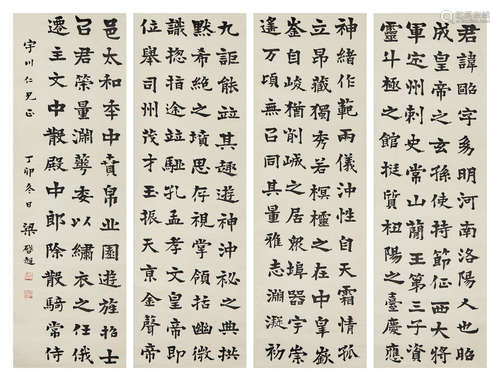 君諱昭字幼明河南洛陽人也昭
成皇帝之玄孫使持節征西大將
軍定州刺史常山簡王第三子資
靈斗極之館挺質杻陽之臺慶應
神緒作範兩儀沖性自天霜情孤
立昂藏獨秀若之在中皐嶔
崟自峻猶削峸之居衆埠器宇崇
邃萬頃無呂同其量雅志淵凝初
九詎能竝其趣遊神沖祕之典拱
默希絕之墳思存指幽微
識揔指途竝驅孔孟孝文皇帝即
位舉司州茂才玉振天京金聲帝
邑太和季中賁帛丘園遊旌招士
召君榮量淵蕚委以繡衣之任俄
遷主文中散殿中郎除散騎常侍
宇川仁兄正 丁卯冬日 梁啟超